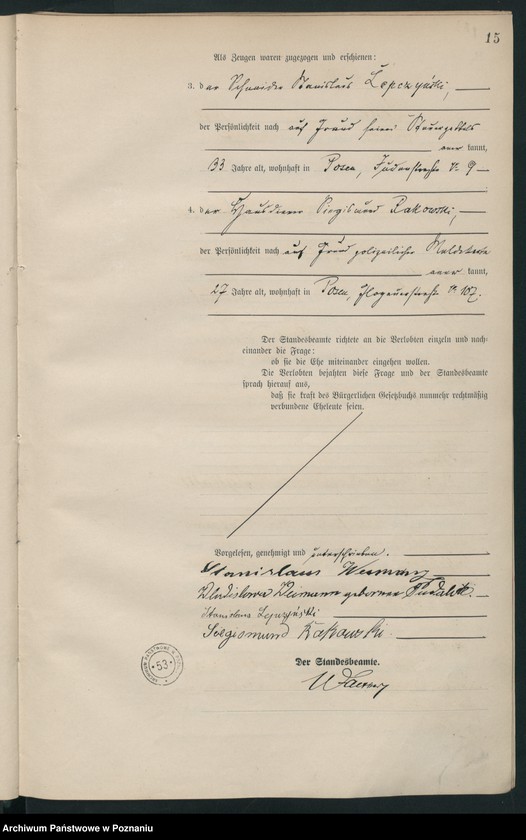 15
Als Zeugen waren zugezogen und erschienen:
3. der Schneider Stanislaus Lepczyński,
der Persönlichkeit nach auf Grund seines Steuerzettels
aner kannt,
33 Jahre alt, wohnhaft in Posen, Judenstraße № 9
4. der Hausdiener Siegismund Rakowski,
der Persönlichkeit nach auf Grund polizeilicher Meldekarte
aner kannt,
27 Jahre alt, wohnhaft in Posen, Glogauerstraße № 107.
Der Standesbeamte richtete an die Verlobten einzeln und nach-
einander die Frage:
ob sie die Ehe miteinander eingehen wollen.
Die Verlobten bejahten diese Frage und der Standesbeamte
sprach hierauf aus,
daß sie kraft des Bürgerlichen Gesetzbuchs nunmehr rechtmäßig
verbundene Eheleute seien.
Vorgelesen, genehmigt und unterschrieben.
Stanislaus
Wladislawa Neumann geborene
Stanislaus Lepczyński
Siegismund Rakowski
Der Standesbeamte.
53
Archiwum Państwowe w Poznaniu